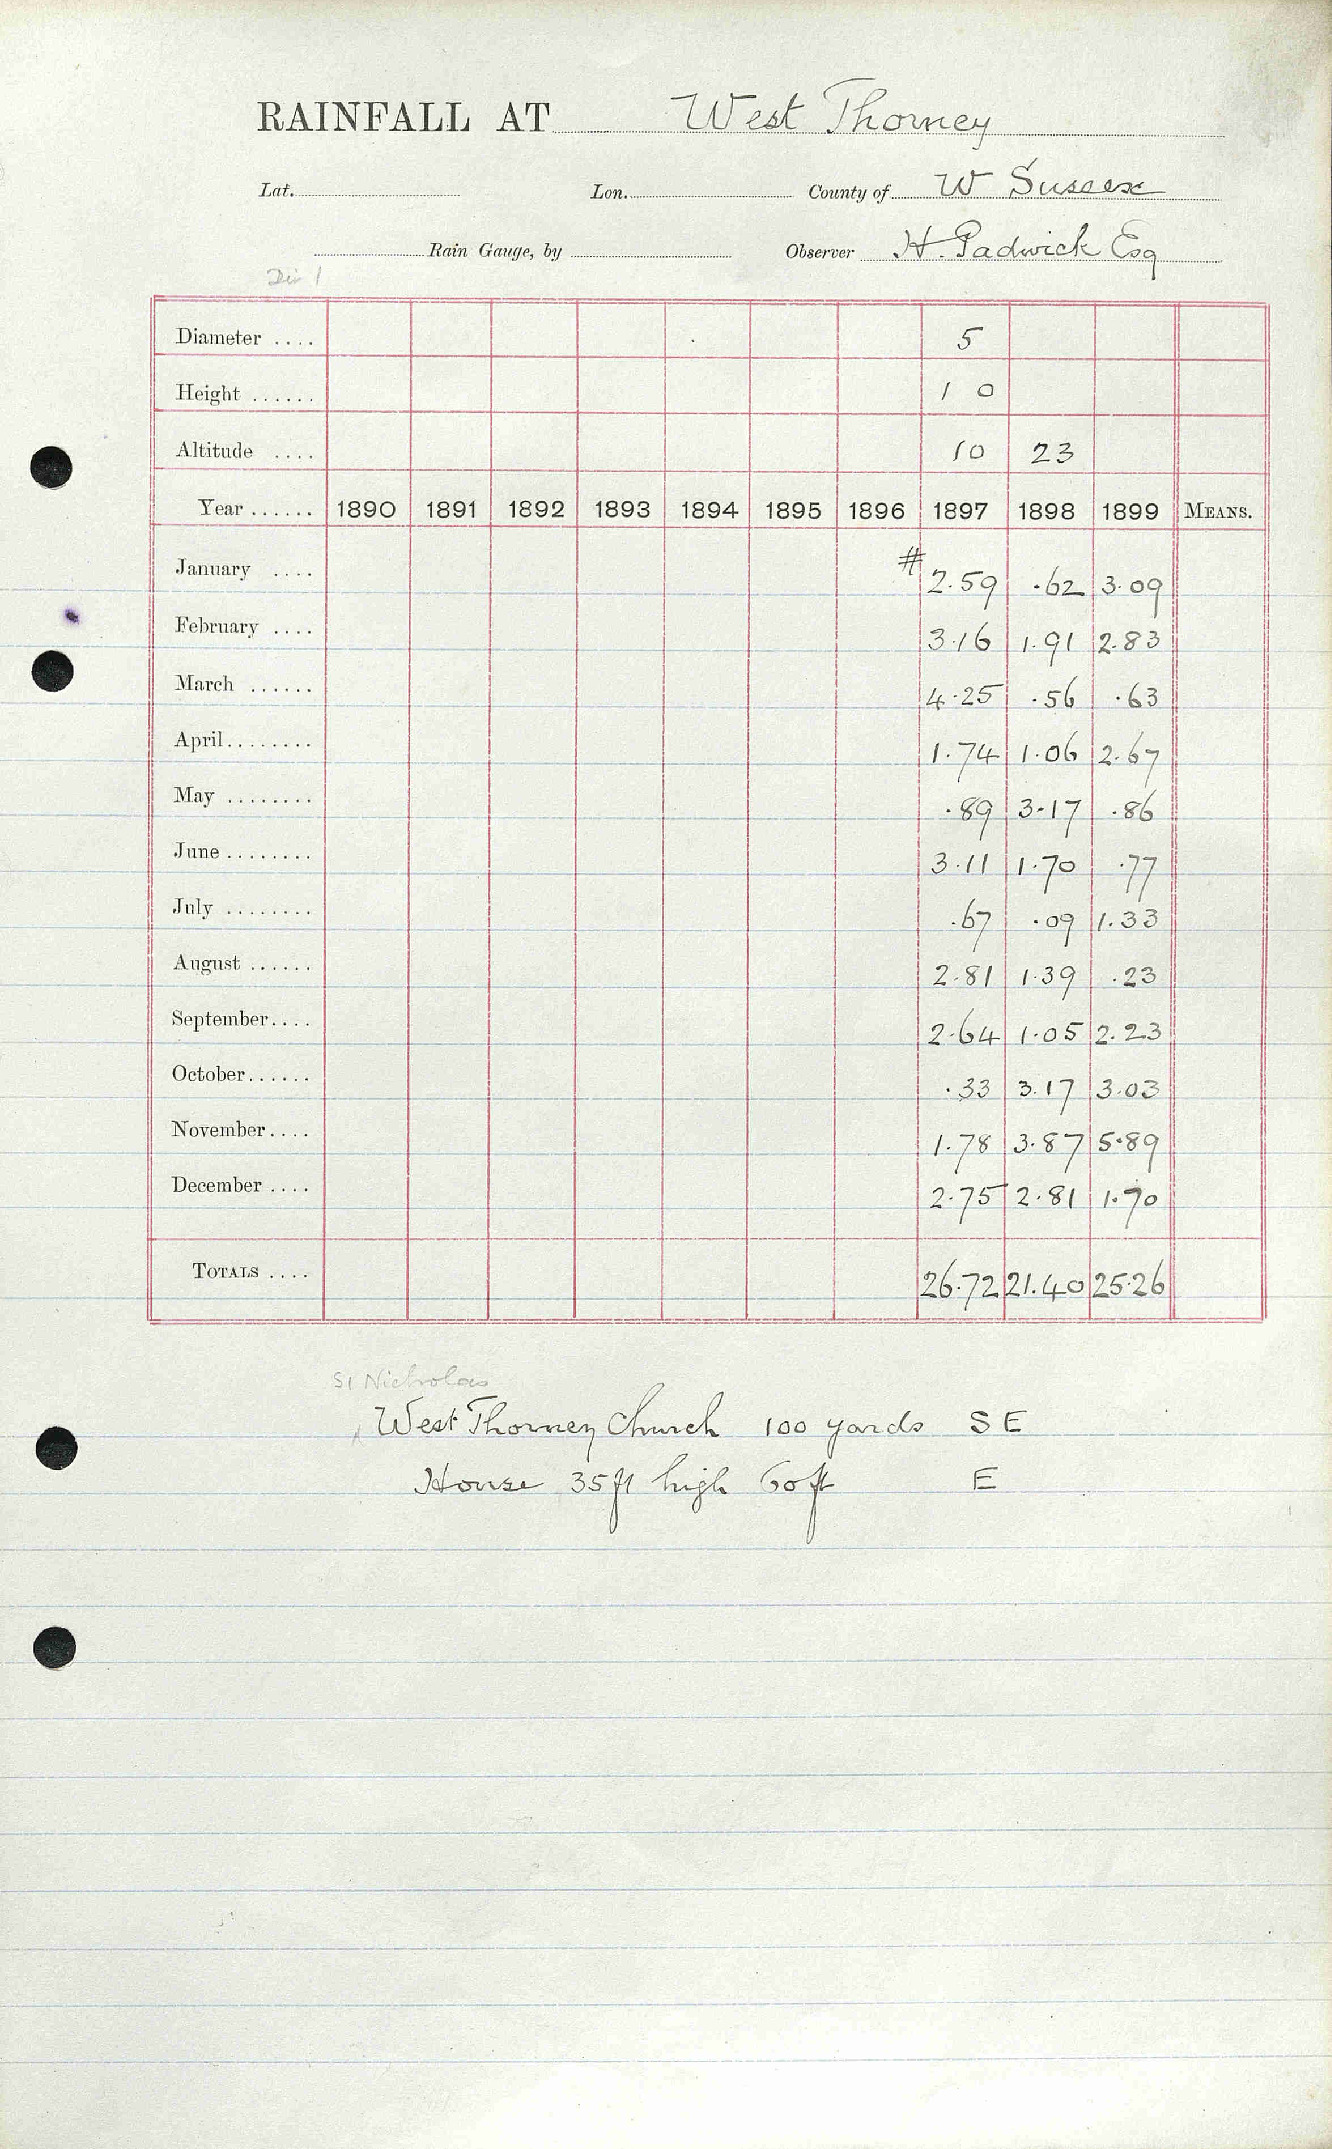 RAINFALL AT West Thorney
Lat. Lon. County of W Sussex
Rain Gauge, by Observer H. Padwick Esq
Div 1
Diameter .... 5
Height ...... 1 0
Altitude .... 10 23
Year ...... 1890 1891 1892 1893 1894 1895 1896 1897 1898 1899 MEANS.
January .... # 2.59 .62 3.09
February .... 3.16 1.91 2.83
March ...... 4.25 .56 .63
April ........ 1.74 1.06 2.67
May ........ .89 3.17 .86
June ........ 3.11 1.70 .77
July ........ .67 .09 1.33
August ...... 2.81 1.39 .23
September.... 2.64 1.05 2.23
October...... .33 3.17 3.03
November.... 1.78 3.87 5.89
December .... 2.75 2.81 1.70
TOTALS .... 26.72 21.40 25.26
St Nicholas
West Thorney Church 100 yards SE
House 35ft high 60ft E